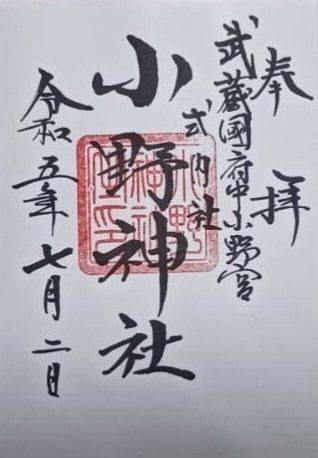 奉拝
武蔵國府中小野宮
式内社
小野神社
令和五年七月二日